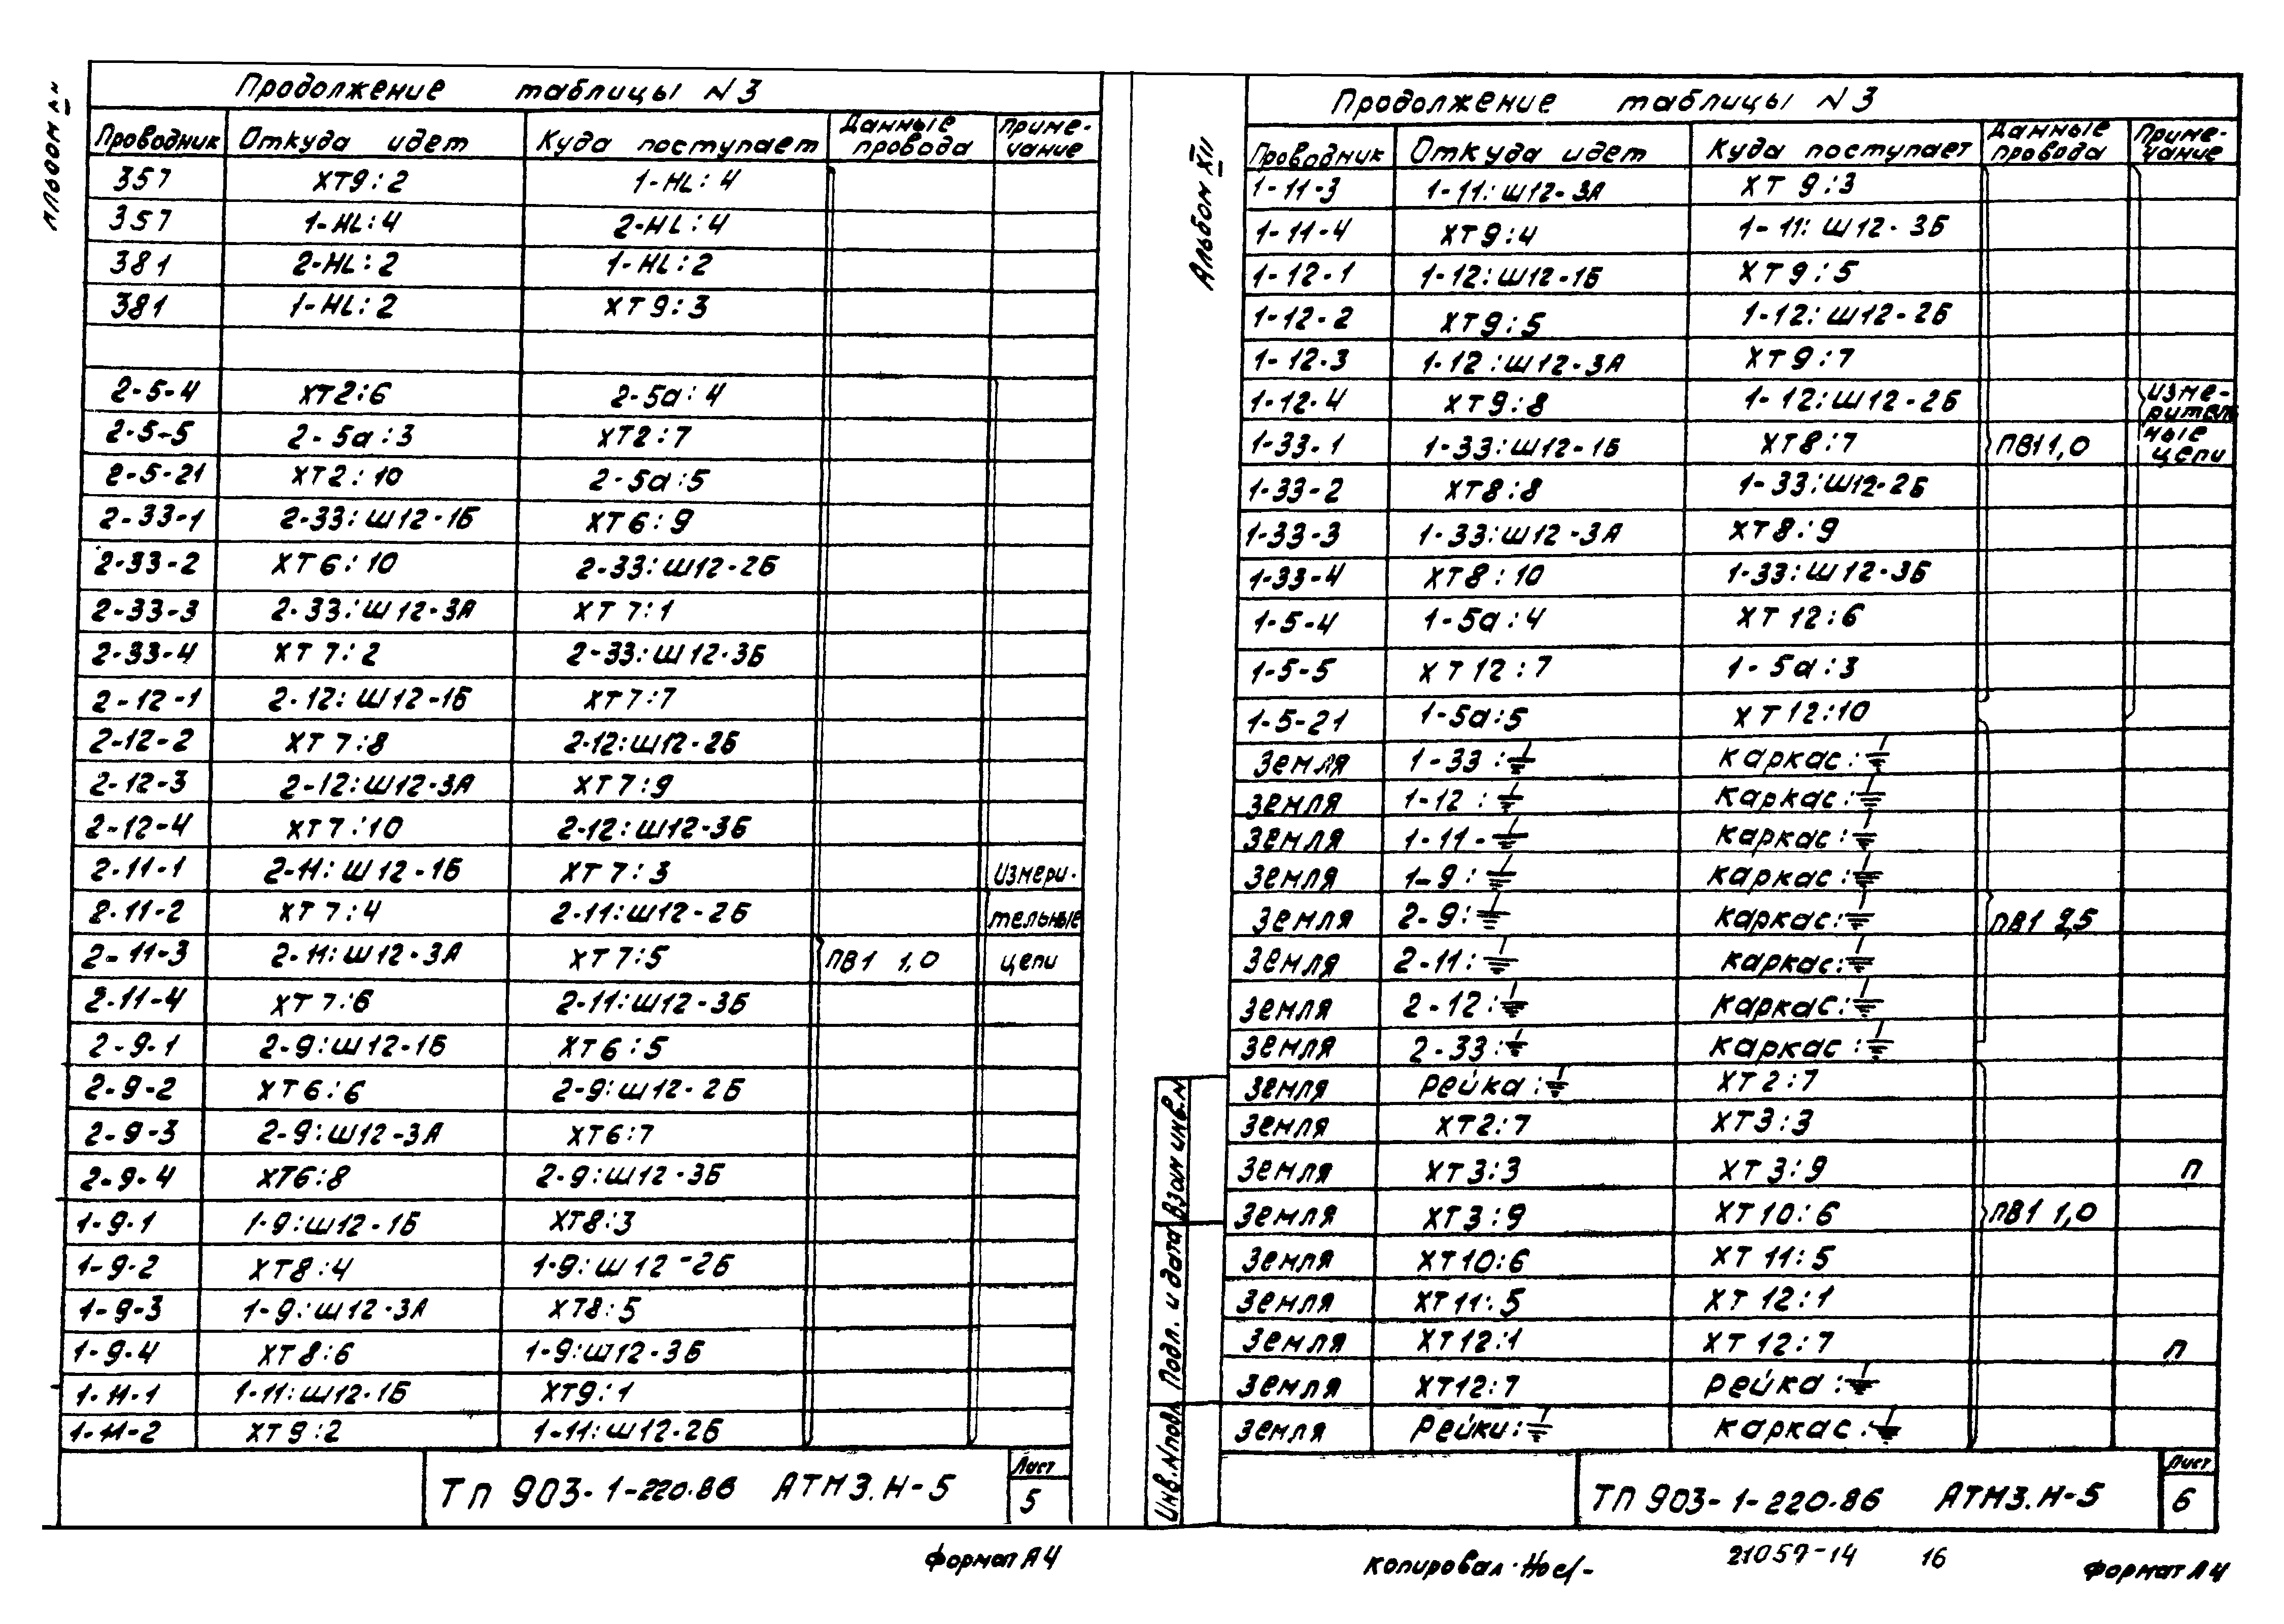 Продолжение таблицы N3
Проводник Откуда идет Куда поступает Данные провода Приме-чание
357 XT9:2 1-HL:4
357 1-HL:4 2-HL:4
381 2-HL:2 1-HL:2
381 1-HL:2 XT9:3
2-5-4 XT2:6 2-5а:4
2-5-5 2-5а:3 XT2:7
2-5-21 XT2:10 2-5а:5
2-33-1 2-33:Ш12-1Б XT6:9
2-33-2 XT6:10 2-33:Ш12-2Б
2-33-3 2-33:Ш12-3А XT7:1
2-33-4 XT7:2 2-33:Ш12-3Б
2-12-1 2-12:Ш12-1Б XT7:7
2-12-2 XT7:8 2-12:Ш12-2Б
2-12-3 2-12:Ш12-3А XT7:9
2-12-4 XT7:10 2-12:Ш12-3Б
2-11-1 2-11:Ш12-1Б XT7:3 Измери-
2-11-2 XT7:4 2-11:Ш12-2Б тельные
2-11-3 2-11:Ш12-3А XT7:5 ПВ1 1,0 цепи
2-11-4 XT7:6 2-11:Ш12-3Б
2-9-1 2-9:Ш12-1Б XT6:5
2-9-2 XT6:6 2-9:Ш12-2Б
2-9-3 2-9:Ш12-3А XT6:7
2-9-4 XT6:8 2-9:Ш12-3Б
1-9-1 1-9:Ш12-1Б XT8:3
1-9-2 XT8:4 1-9:Ш12-2Б
1-9-3 1-9:Ш12-3А XT8:5
1-9-4 XT8:6 1-9:Ш12-3Б
1-11-1 1-11:Ш12-1Б XT9:1
1-11-2 XT9:2 1-11:Ш12-2Б
ТП 903-1-220.86 АТМ3.Н-5
Лист
5
Формат А4
Альбом XII
Продолжение таблицы N3
Проводник Откуда идет Куда поступает Данные провода Приме-чание
1-11-3 1-11:Ш12-3А XT9:3
1-11-4 XT9:4 1-11:Ш12-3Б
1-12-1 1-12:Ш12-1Б XT9:5
1-12-2 XT9:5 1-12:Ш12-2Б
1-12-3 1-12:Ш12-3А XT9:7
1-12-4 XT9:8 1-12:Ш12-2Б Изме-ритель
1-33-1 1-33:Ш12-1Б XT8:7 ПВ1 1,0 ные цепи
1-33-2 XT8:8 1-33:Ш12-2Б
1-33-3 1-33:Ш12-3А XT8:9
1-33-4 XT8:10 1-33:Ш12-3Б
1-5-4 1-5а:4 XT12:6
1-5-5 XT12:7 1-5а:3
1-5-21 1-5а:5 XT12:10
Земля 1-33:⏚ каркас:⏚
Земля 1-12:⏚ каркас:⏚
Земля 1-11-⏚ каркас:⏚
Земля 1-9:⏚ каркас:⏚
Земля 2-9:⏚ каркас:⏚ ПВ1 2,5
Земля 2-11:⏚ каркас:⏚
Земля 2-12:⏚ каркас:⏚
Земля 2-33:⏚ каркас:⏚
Земля рейка:⏚ XT2:7
Земля XT2:7 XT3:3
Земля XT3:3 XT3:9 п
Земля XT3:9 XT10:6 ПВ1 1,0
Земля XT10:6 XT11:5
Земля XT11:5 XT12:1
Земля XT12:1 XT12:7 п
Земля XT12:7 рейка:⏚
Земля Рейки:⏚ каркас:⏚
Взам инв.N
Подп. и дата
Инв.N подл
ТП 903-1-220.86 АТМ3.Н-5
Лист
6
копировал
21057-14 16
Формат А4